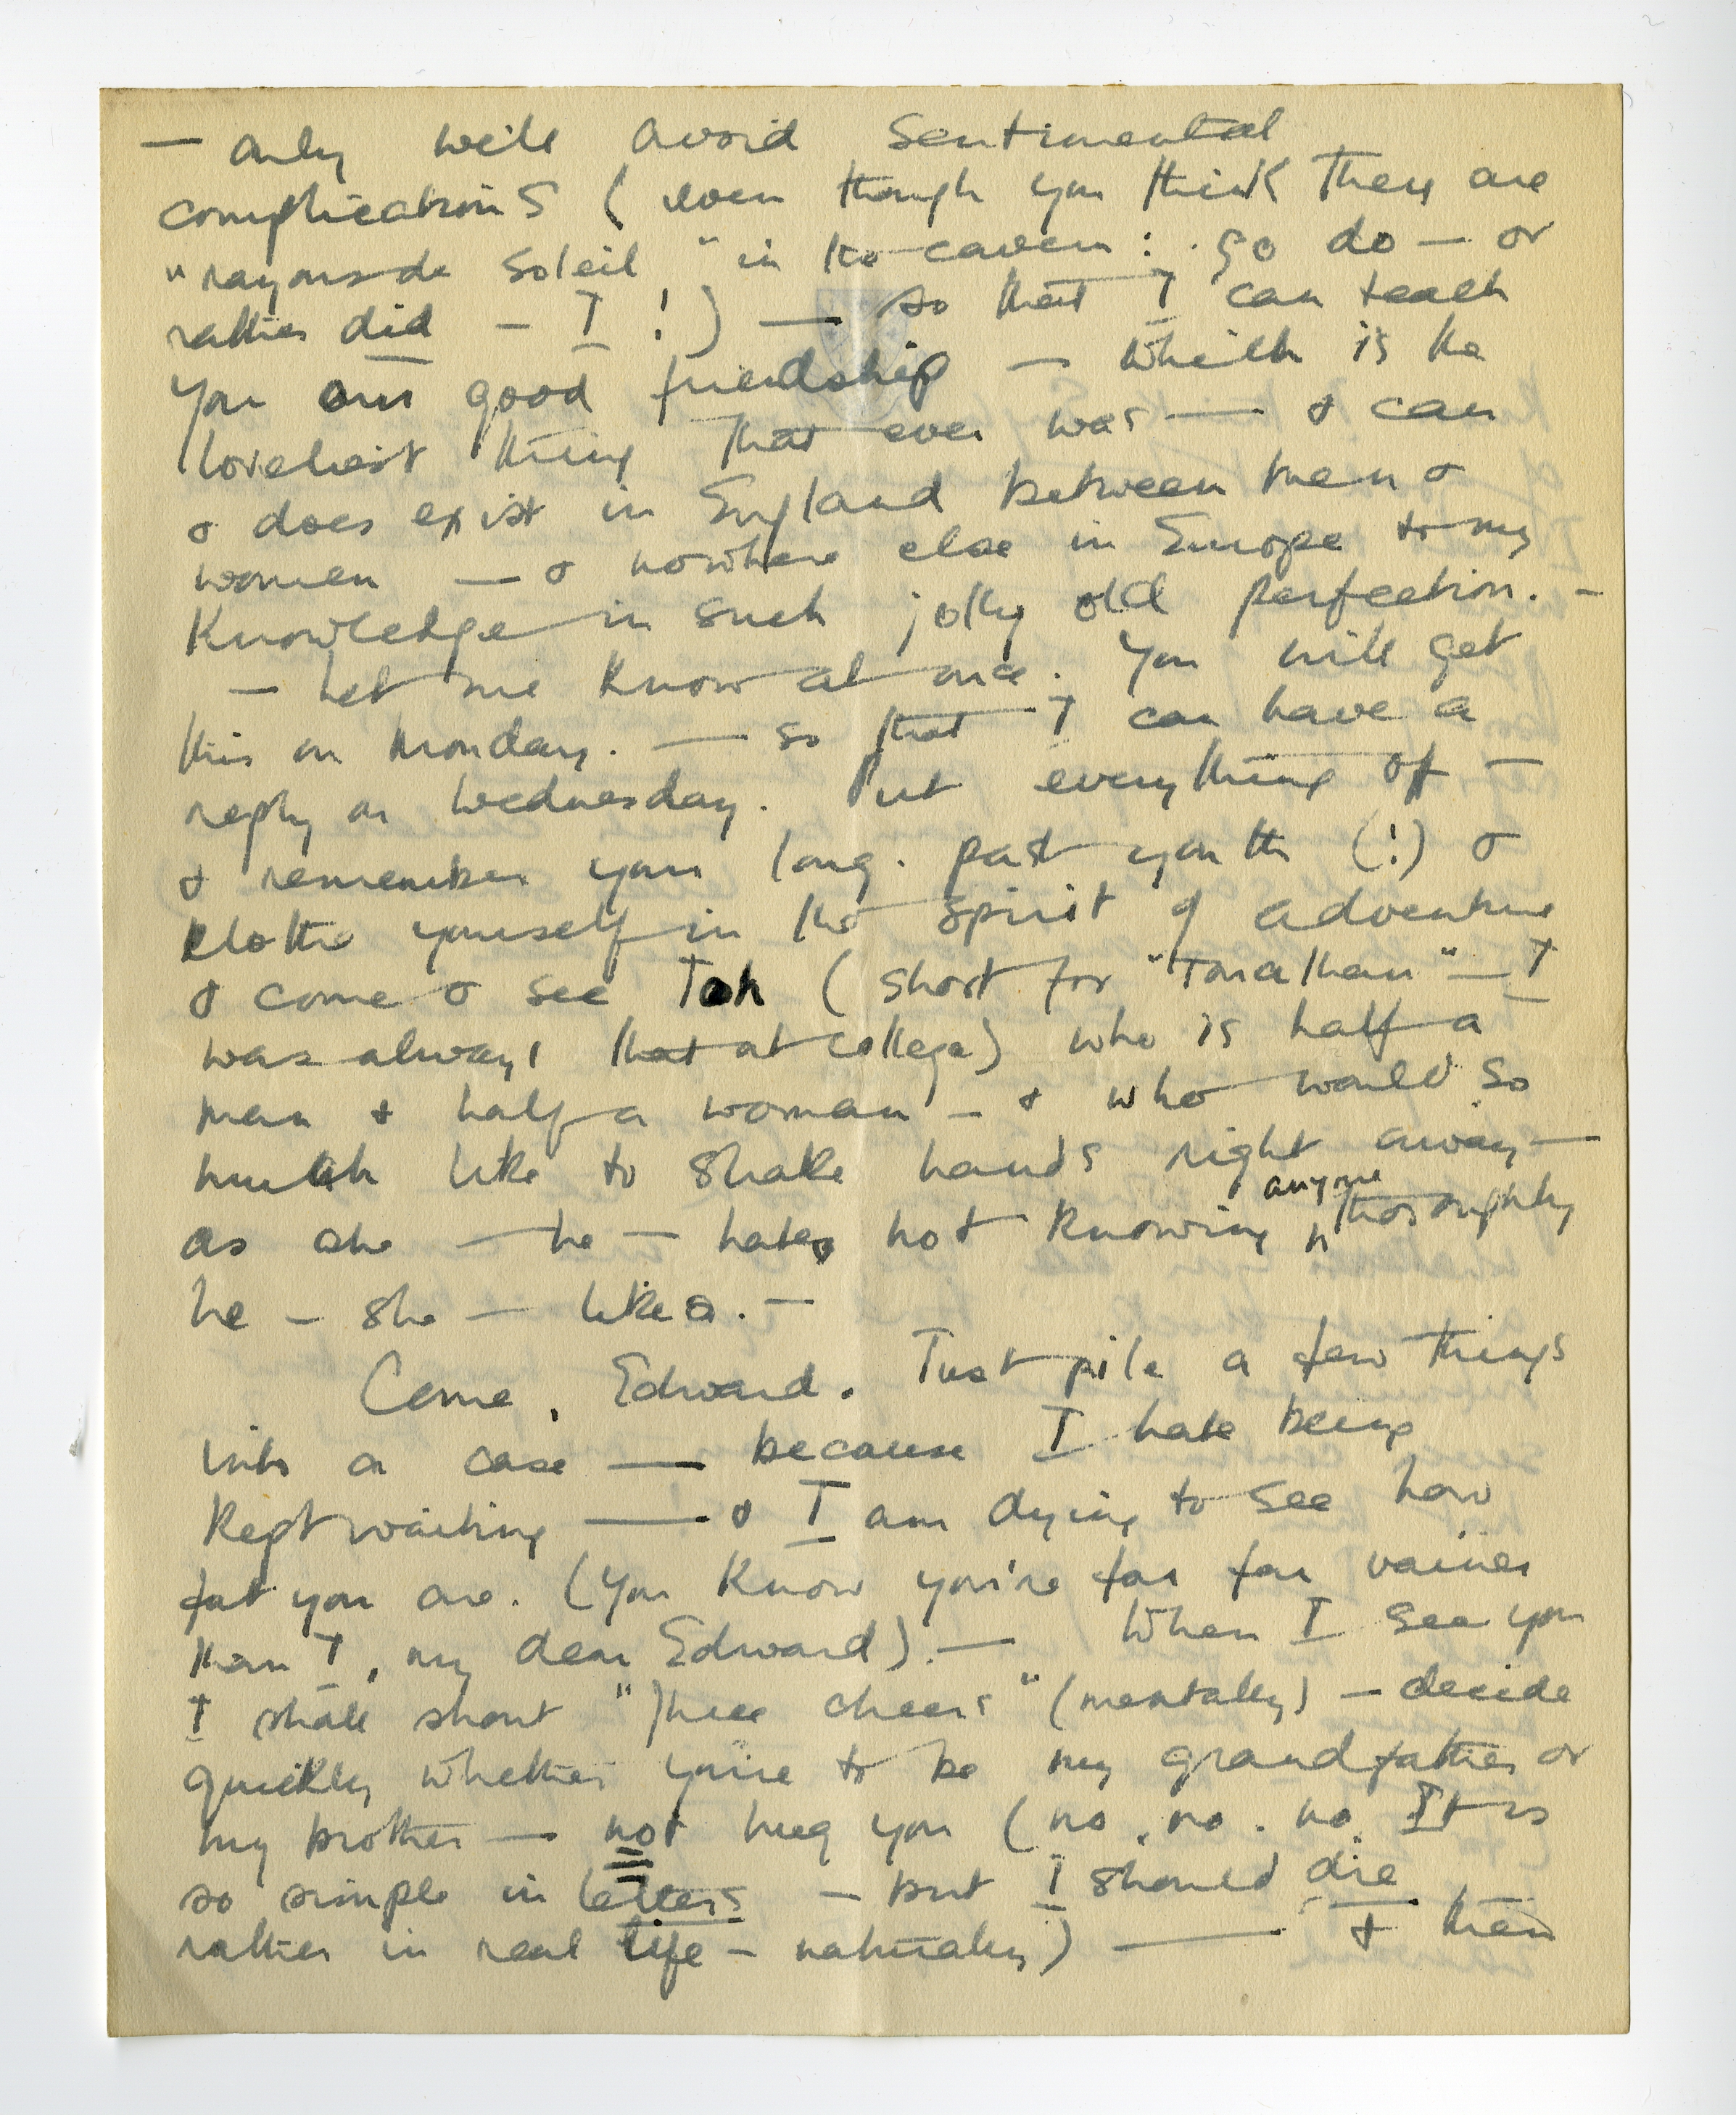 — only we'll avoid sentimental
complications (even though you think they are
"rayons de soleil" in the cavern: so do — or
rather did — I!) — so that I can teach
you our good friendship — which is the
loveliest thing that ever was — & can
& does exist in England between men &
women — & nowhere else in Europe to my
knowledge in such jolly old perfection. —
— Let me know at once. You will get
this on Monday. — so that I can have a
reply on Wednesday. Put everything off —
& remember your long past youth (!) &
clothe yourself in the spirit of adventure
& come & see Jon (short for "Jonathan" — I
was always that at college) who is half a
man & half a woman — & who would so
much like to shake hands right away —
as she — he — hates not knowing anyone thoroughly
he — she — likes. —
Come, Edward. Just pile a few things
into a case — because I hate being
kept waiting — & I am dying to see how
fat you are. (You know you're far far vainer
than I, my dear Edward). — When I see you
I shall shout "Three cheers" (mentally) — decide
quickly whether you're to be my grandfather or
my brother — not hug you (no, no. no. It is
so simple in letters — but I should die
rather in real life — naturally) — & then